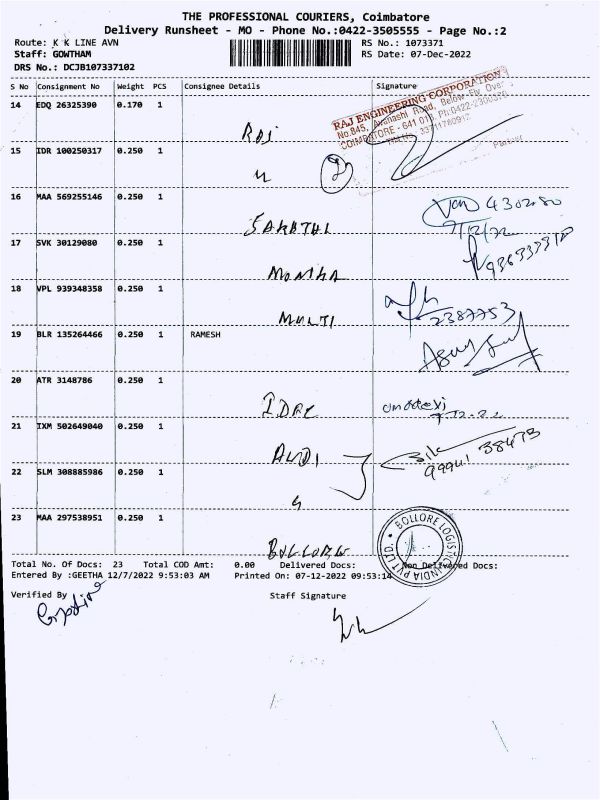 THE PROFESSIONAL COURIERS, Coimbatore
Delivery Runsheet - MO - Phone No.:0422-3505555 - Page No.:2
Route: K K LINE AVN RS No.: 1073371
Staff: GOWTHAM RS Date: 07-Dec-2022
DRS No.: DCJB107337102
S No Consignment No Weight PCS Consignee Details Signature
14 EDQ 26325390 0.170 1
RAJ ENGINEERING CORPORATION
No.845, Avanashi Road, Below Fly Over
COIMBATORE - 641 018.
Raj
Partner
15 IDR 100250317 0.250 1
2
16 MAA 569255146 0.250 1
430280
SAKATHI 7/12/22
17 SVK 30129080 0.250 1
MONIKA
18 VPL 939348358 0.250 1
2387753
MULTI
19 BLR 135264466 0.250 1 RAMESH
20 ATR 3148786 0.250 1
IDBI
7-12-22
21 IXM 502649040 0.250 1
AUDI 99941 38473
22 SLM 308885986 0.250 1
23 MAA 297538951 0.250 1
BOLLORE LOGISTICS INDIA PVT LTD.
Total No. Of Docs: 23 Total COD Amt: 0.00 Delivered Docs: Non Delivered Docs:
Entered By :GEETHA 12/7/2022 9:53:03 AM Printed On: 07-12-2022 09:53:14
Verified By Staff Signature